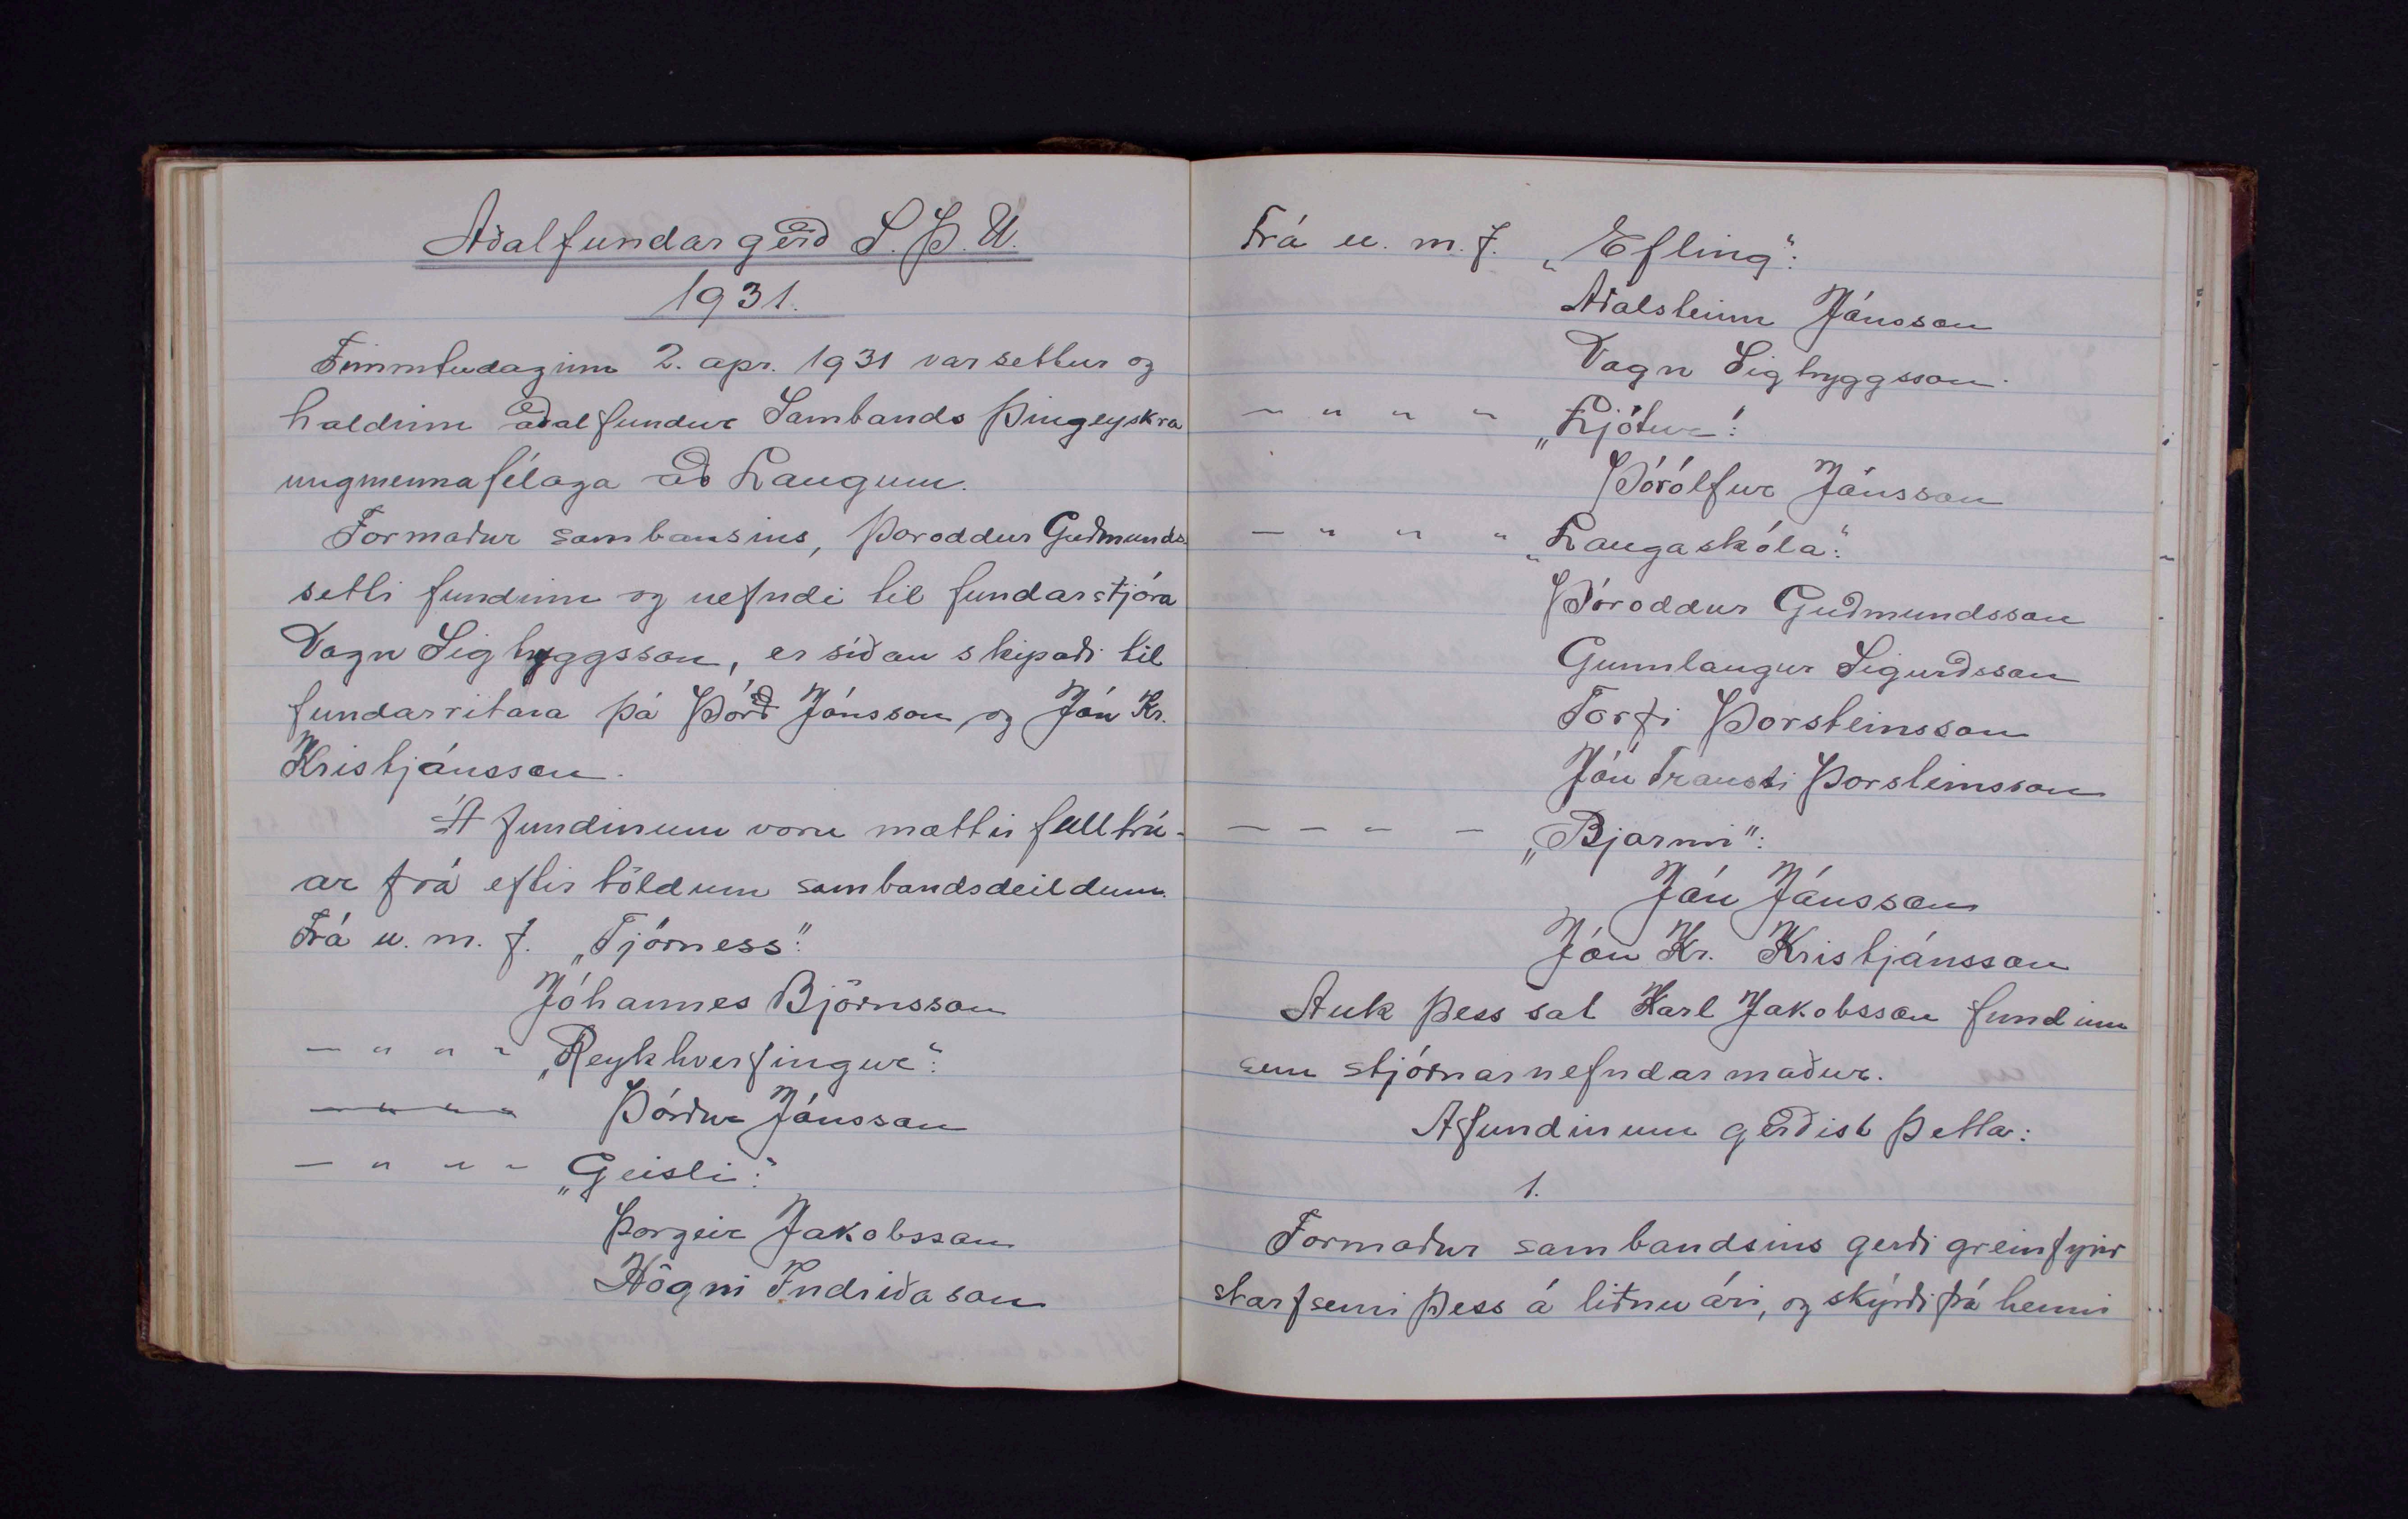 Aðalfundargerð S.Þ.U.
1931.
Fimmtudaginn 2. apr. 1931 var settur og
haldinn aðalfundur Sambands Þingeyskra
ungmennafélaga að Laugum.
Formaður sambansins, Þoroddur Guðmunds.
setti fundinn og nefndi til fundarstjóra
Vagn Sigtryggsson, er síðan skipaði til
fundarritara þá Þórð Jónsson og Jón Kr.
Kristjánsson.
Á fundinum voru mættir fulltrú-
ar frá eftirtöldum sambandsdeildum.
Frá u. m. f. „Tjörness":
Jóhannes Björnsson
— " " " „Reykhverfingur":
— " " " Þórður Jónsson
— " " " „Geisli":
Þorgeir Jakobsson
Högni Indriðason
Frá u. m. f. „Efling":
Aðalsteinn Jónsson
Vagn Sigtryggsson.
— " " " „Ljótur":
Þórólfur Jónsson
— " " " „Laugaskóla":
Þóroddur Guðmundsson
Gunnlaugur Sigurðsson
Torfi Þorsteinsson
Jón Trausti Þorsteinsson
— — — — „Bjarmi":
Jón Jónsson
Jón Kr. Kristjánsson
Auk þess sat Karl Jakobsson fundinn
sem stjórnarnefndarmaður.
A fundinum gerðist þetta:
1.
Formaður sambandsins gerði grein fyrir
starfsemi þess á liðnu ári, og skýrði frá henni